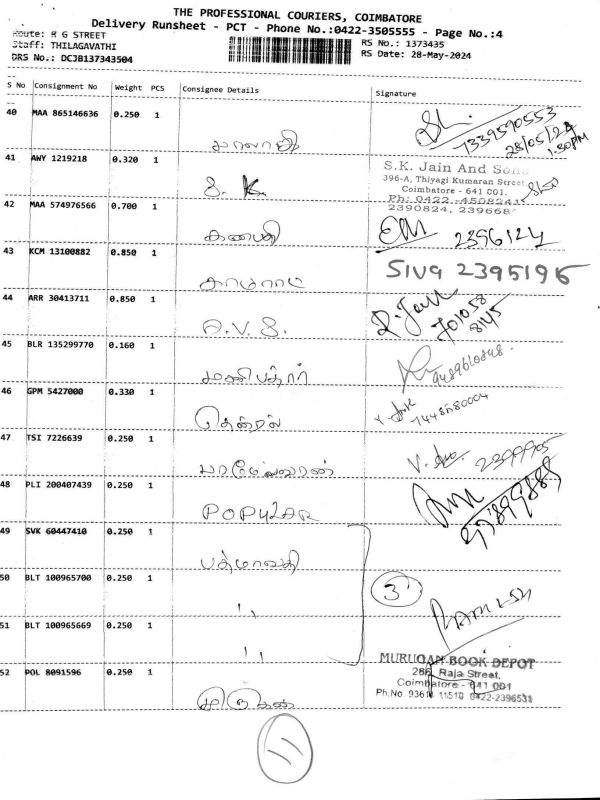 THE PROFESSIONAL COURIERS, COIMBATORE
Delivery Runsheet - PCT - Phone No.:0422-3505555 - Page No.:4
Route: R G STREET
Staff: THILAGAVATHI
DRS No.: DCJB137343504
RS No.: 1373435
RS Date: 28-May-2024
S No Consignment No Weight PCS Consignee Details Signature
40 MAA 865146636 0.250 1
7339590553
28/05/24
1.30PM
41 AWY 1219218 0.320 1 S. K.
S.K. Jain And Sons
396-A, Thiyagi Kumaran Street
Coimbatore - 641 001.
Ph: 0422-4508241
2390824, 239668
42 MAA 574976566 0.700 1 கணபதி
2396124
43 KCM 13100882 0.850 1 காமராட்
Siva 2395195
44 ARR 30413711 0.850 1 A.V.S.
R. Jain
701058
8145
45 BLR 135299770 0.160 1
9489610848
46 GPM 5427000 0.330 1 தென்றல்
7448580004
47 TSI 7226639 0.250 1
2399905
48 PLI 200407439 0.250 1 POPULAR
49 SVK 60447410 0.250 1 பத்மாவதி
50 BLT 100965700 0.250 1 ''
3
51 BLT 100965669 0.250 1 ''
52 POL 8091596 0.250 1 முருகன்
MURUGAN BOOK DEPOT
286, Raja Street,
Coimbatore - 641 001
Ph.No 93611 11510 0422-2396531